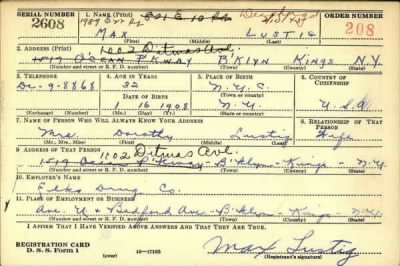 SERIAL NUMBER 1. NAME (Print) ORDER NUMBER
2608 MAX LUSTIG 208
(First) (Middle) (Last)
2. ADDRESS (Print) 1002 Ditmas Ave.
1517 OCEAN PKWAY B'KLYN KINGS N.Y.
(Number and street or R. F. D. number) (Town) (County) (State)
3. TELEPHONE 4. AGE IN YEARS 5. PLACE OF BIRTH 6. COUNTRY OF CITIZENSHIP
De-9-8868 32 N.Y.C.
DATE OF BIRTH (Town or county)
1 16 1908 N.Y. U.S.A.
(Exchange) (Number) (Mo.) (Day) (Yr.) (State or country)
7. NAME OF PERSON WHO WILL ALWAYS KNOW YOUR ADDRESS 8. RELATIONSHIP OF THAT PERSON
Mrs. Dorothy Lustig Wife
(Mr., Mrs., Miss) (First) (Middle) (Last)
9. ADDRESS OF THAT PERSON 1102 Ditmas Ave.
1517 Ocean Pkway B'klyn - Kings - N.Y.
(Number and street or R. F. D. number) (Town) (County) (State)
10. EMPLOYER'S NAME
Drug Co.
11. PLACE OF EMPLOYMENT OR BUSINESS
Ave. U & Bedford Ave. B'klyn - Kings - N.Y.
(Number and street or R. F. D. number) (Town) (County) (State)
I AFFIRM THAT I HAVE VERIFIED ABOVE ANSWERS AND THAT THEY ARE TRUE.
REGISTRATION CARD
D. S. S. Form 1 16-17105 Max Lustig
(Registrant's signature)